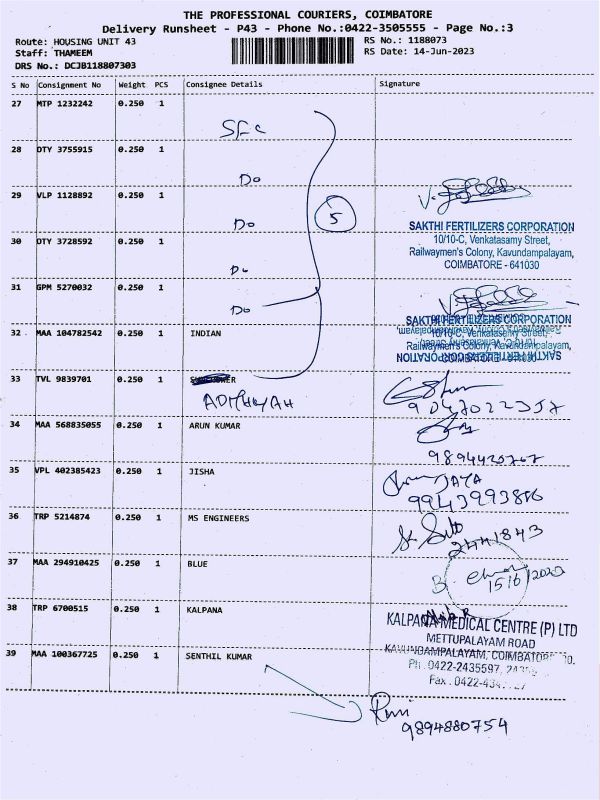 THE PROFESSIONAL COURIERS, COIMBATORE
Delivery Runsheet - P43 - Phone No.:0422-3505555 - Page No.:3
Route: HOUSING UNIT 43
RS No.: 1188073
Staff: THAMEEM
RS Date: 14-Jun-2023
DRS No.: DCJB118807303
S No Consignment No Weight PCS Consignee Details Signature
27 MTP 1232242 0.250 1
SFC
28 DTY 3755915 0.250 1
Do
29 VLP 1128892 0.250 1
Do
5
SAKTHI FERTILIZERS CORPORATION
30 DTY 3728592 0.250 1
10/10-C, Venkatasamy Street,
Railwaymen's Colony, Kavundampalayam,
COIMBATORE - 641030
Do
31 GPM 5270032 0.250 1
Do
SAKTHI FERTILIZERS CORPORATION
32 MAA 104782542 0.250 1 INDIAN
10/10-C, Venkatasamy Street,
Railwaymen's Colony, Kavundampalayam,
COIMBATORE - 641030
33 TVL 9839701 0.250 1
34 MAA 568835055 0.250 1 ARUN KUMAR
35 VPL 402385423 0.250 1 JISHA
JAYA
9943993886
36 TRP 5214874 0.250 1 MS ENGINEERS
2441843
37 MAA 294910425 0.250 1 BLUE
38 TRP 6700515 0.250 1 KALPANA
KALPANA MEDICAL CENTRE (P) LTD
METTUPALAYAM ROAD
39 MAA 100367725 0.250 1 SENTHIL KUMAR
KAVUNDAMPALAYAM, COIMBATORE
Ph : 0422-2435597,
Fax : 0422-
9894880754